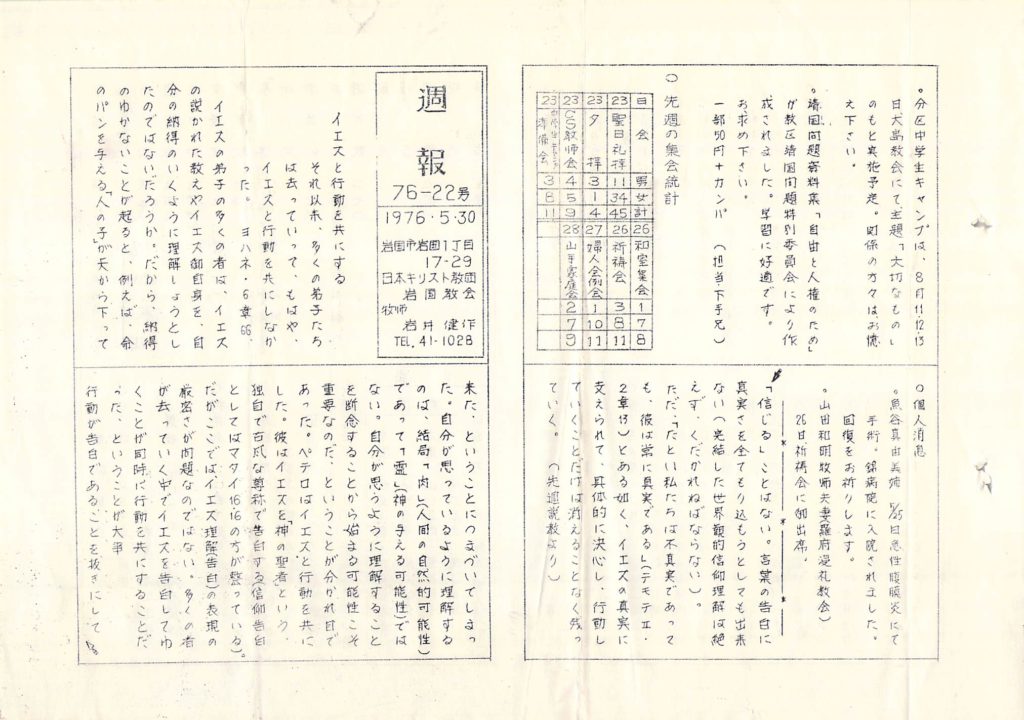 週報
76-22号
1976・5・30
岩国市岩国1丁目
17-29
日本キリスト教団
岩国教会
牧師
岩井健作
TEL. 41-1028
イエスと行動を共にする
それ以来、多くの弟子たち
は去っていって、もはや、
イエスと行動を共にしなか
った。 ヨハネ・6章66、
イエスの弟子の多くの者は、イエス
の説かれた教えやイエス御自身を、自
分の納得のいくように理解しようとし
たのではないだろうか。だから、納得
のゆかないことが起ると、例えば、命
のパンを与える「人の子」が天から下って
来た、ということにつまづいてしまっ
た。自分が思っているように理解する
のは、結局「肉」(人間の自然的可能性)
であって「霊」(神の与える可能性)では
ない。自分が思うように理解すること
を断念することから始まる可能性こそ
重要なのだ、ということが分かれ目で
あった。ペテロはイエスと行動を共に
した。彼はイエスを「神の聖者」という、
独自で古風な尊称で告白する(信仰告白
としてはマタイ16.16の方が整っている)。
だがここではイエス理解(告白)の表現の
厳密さが問題なのではない。多くの者
が去っていく中でイエスを告白してゆ
くことが同時に行動を共にすることだ
った、ということが大事
行動が告白であることを抜きにして
○分区中学生キャンプは、8月11.12.13
日大島教会にて主題「大切なもの」
のもと実施予定。関係の方々はお憶
え下さい。
○靖国問題資料集「自由と人権のため」
が教区靖国問題特別委員会により作
成されました。学習に好適です。
お求め下さい。
一部50円+カンパ (担当下手兄)
○先週の集会統計
日 会 男 女 計
23 聖日礼拝 11 34 45
23 夕拝 3 1 4
23 CS教師会 4 5 9
23 準備会 3 8 11
26 和室集会 1 7 8
26 祈祷会 3 8 11
27 婦人会例会 1 10 11
28 山手家庭会 2 7 9
○個人消息
○魚谷真由美姉 5/25日急性腹膜炎にて
手術。錦病院に入院されました。
回復をお祈りします。
○山田和明牧師夫妻(羅府巡礼教会)
26日祈祷会に御出席。
「信じる」ことはない。言葉の告白に
真実さを全てもり込もうとしても出来
ない(完結した世界観的信仰理解は絶
えず、くだかれねばならない)。
ただ、「たとい私たちは不真実であって
も、彼は常に真実である」(テモテエ・
2章13)とある如く、イエスの真実に
支えられて、具体的に決心し、行動し
ていくことだけは消えることなく残っ
ていく。 (先週説教より)